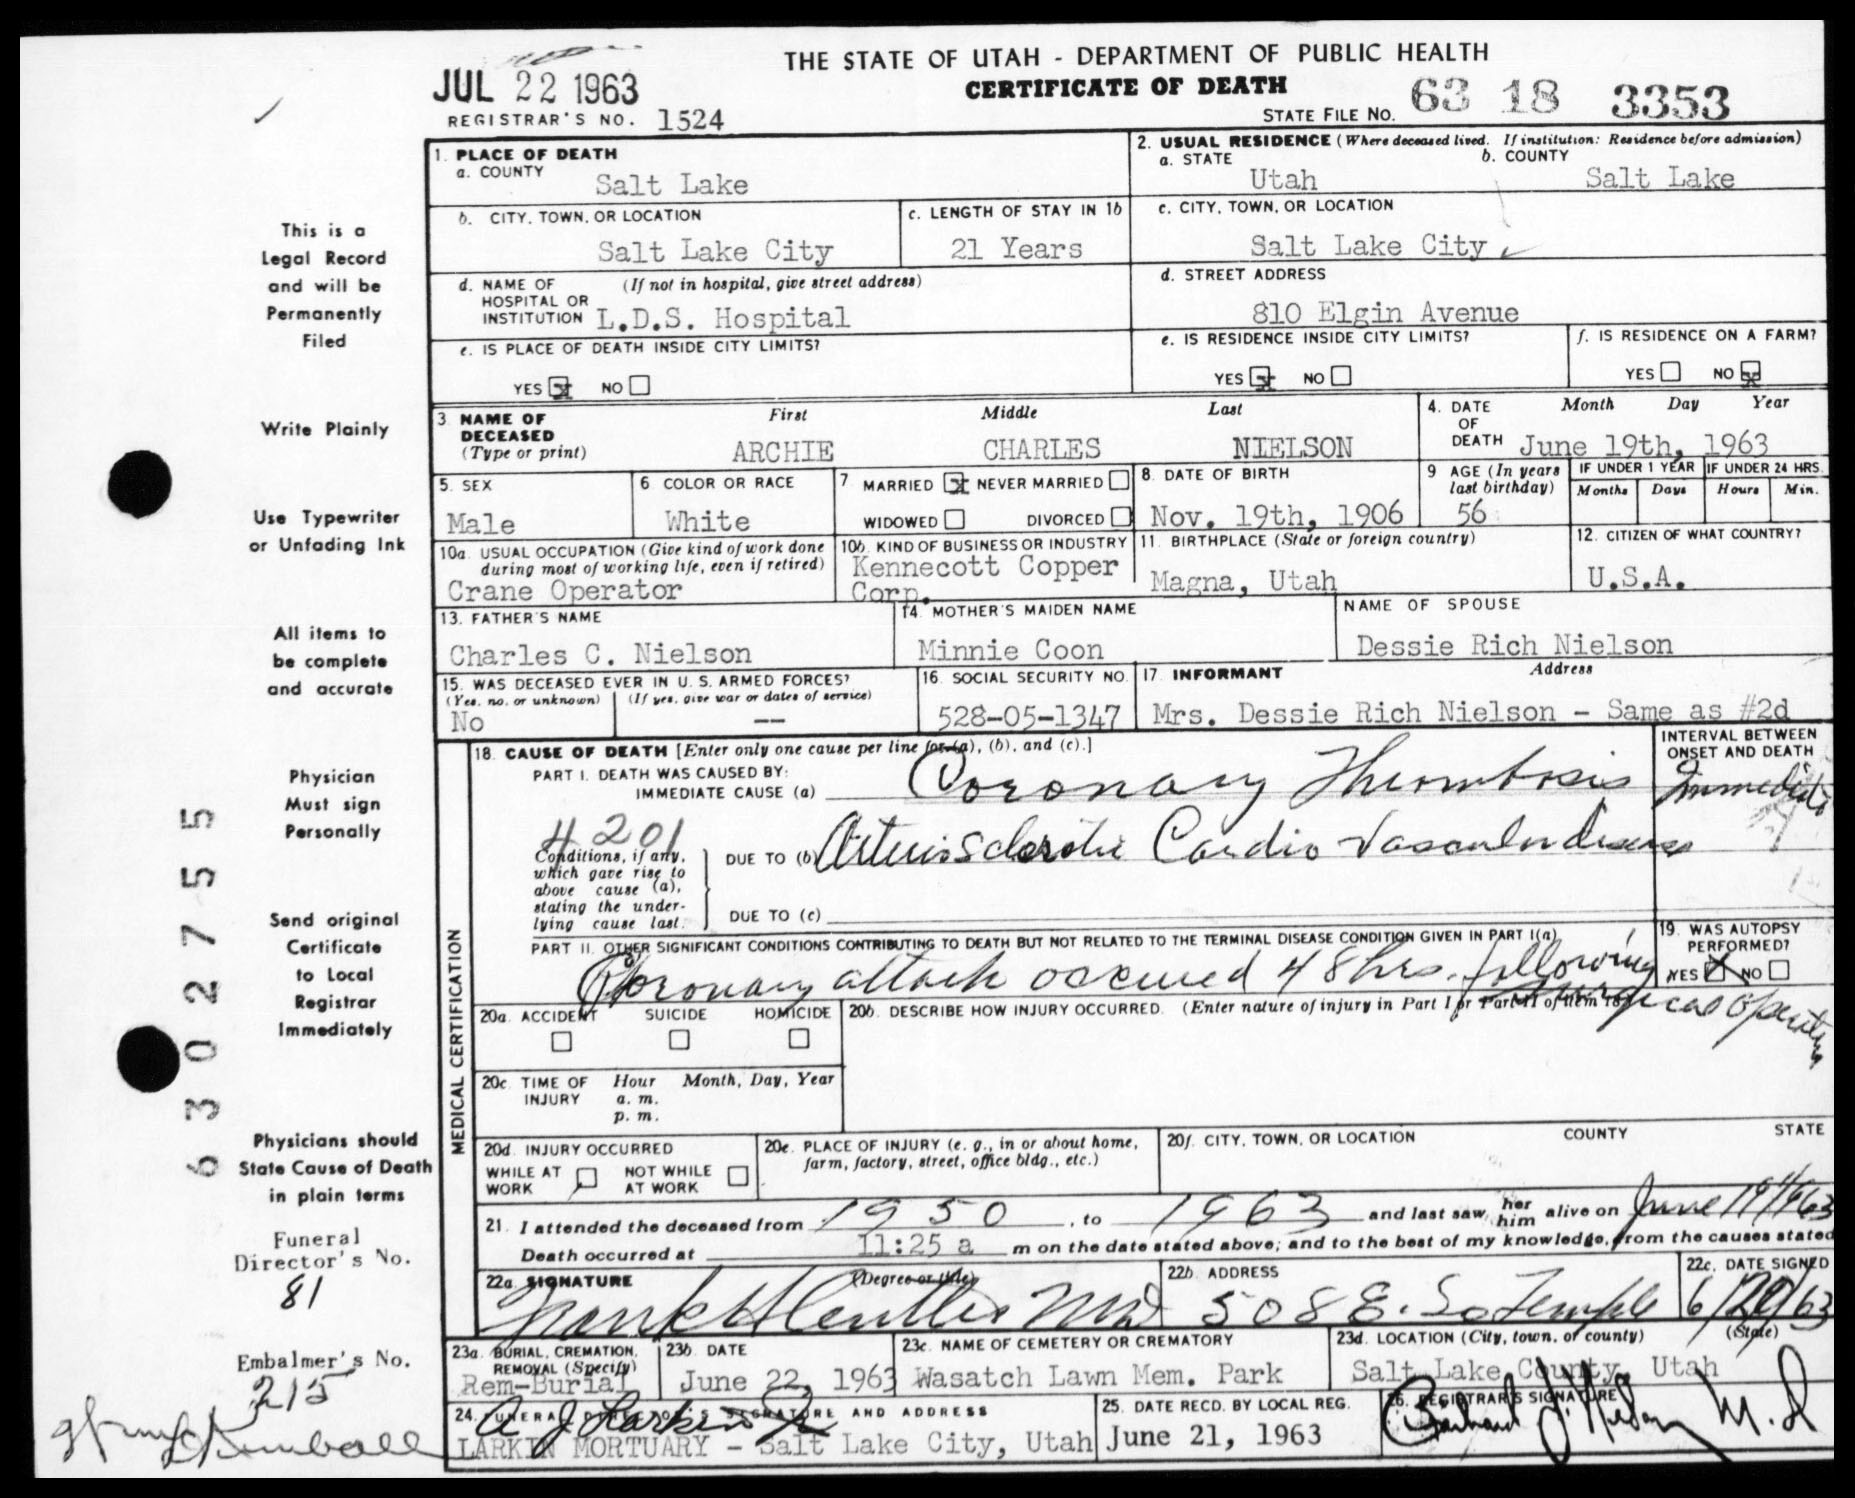 THE STATE OF UTAH - DEPARTMENT OF PUBLIC HEALTH
CERTIFICATE OF DEATH
JUL 22 1963
REGISTRAR'S NO. 1524
STATE FILE NO. 63 18 3353
1. PLACE OF DEATH
a. COUNTY
Salt Lake
2. USUAL RESIDENCE (Where deceased lived. If institution: Residence before admission)
a. STATE b. COUNTY
Utah Salt Lake
b. CITY, TOWN, OR LOCATION
Salt Lake City
c. LENGTH OF STAY IN 1b
21 Years
c. CITY, TOWN, OR LOCATION
Salt Lake City
d. NAME OF (If not in hospital, give street address)
HOSPITAL OR
INSTITUTION L.D.S. Hospital
d. STREET ADDRESS
810 Elgin Avenue
e. IS PLACE OF DEATH INSIDE CITY LIMITS?
YES x NO
e. IS RESIDENCE INSIDE CITY LIMITS?
YES x NO
f. IS RESIDENCE ON A FARM?
YES NO x
3. NAME OF DECEASED (Type or print)
First Middle Last
ARCHIE CHARLES NIELSON
4. DATE OF DEATH
Month Day Year
June 19th, 1963
5. SEX
Male
6. COLOR OR RACE
White
7. MARRIED x NEVER MARRIED
WIDOWED DIVORCED
8. DATE OF BIRTH
Nov. 19th, 1906
9. AGE (In years last birthday)
56
IF UNDER 1 YEAR
Months Days
IF UNDER 24 HRS.
Hours Min.
10a. USUAL OCCUPATION (Give kind of work done
during most of working life, even if retired)
Crane Operator
10b. KIND OF BUSINESS OR INDUSTRY
Kennecott Copper
Corp.
11. BIRTHPLACE (State or foreign country)
Magna, Utah
12. CITIZEN OF WHAT COUNTRY?
U.S.A.
13. FATHER'S NAME
Charles C. Nielson
14. MOTHER'S MAIDEN NAME
Minnie Coon
NAME OF SPOUSE
Dessie Rich Nielson
15. WAS DECEASED EVER IN U. S. ARMED FORCES?
(Yes, no, or unknown) (If yes, give war or dates of service)
No --
16. SOCIAL SECURITY NO.
528-05-1347
17. INFORMANT Address
Mrs. Dessie Rich Nielson - Same as #2d
MEDICAL CERTIFICATION
18. CAUSE OF DEATH [Enter only one cause per line for (a), (b), and (c).]
PART I. DEATH WAS CAUSED BY:
IMMEDIATE CAUSE (a) Coronary Thrombosis
INTERVAL BETWEEN
ONSET AND DEATH
Immediate
4201
Conditions, if any,
which gave rise to
above cause (a),
stating the under-
lying cause last.
DUE TO (b) Arteriosclerotic Cardio Vascular disease
DUE TO (c)
PART II. OTHER SIGNIFICANT CONDITIONS CONTRIBUTING TO DEATH BUT NOT RELATED TO THE TERMINAL DISEASE CONDITION GIVEN IN PART I(a)
Coronary attack occured 48 hrs. following
surgical operation
19. WAS AUTOPSY
PERFORMED?
YES X NO
20a. ACCIDENT SUICIDE HOMICIDE
20b. DESCRIBE HOW INJURY OCCURRED. (Enter nature of injury in Part I or Part II of item 18.)
20c. TIME OF INJURY
Hour Month, Day, Year
a. m.
p. m.
20d. INJURY OCCURRED
WHILE AT WORK NOT WHILE AT WORK
20e. PLACE OF INJURY (e. g., in or about home,
farm, factory, street, office bldg., etc.)
20f. CITY, TOWN, OR LOCATION COUNTY STATE
21. I attended the deceased from 1950, to 1963 and last saw her him alive on June 19 1963
Death occurred at 11:25 a m on the date stated above; and to the best of my knowledge, from the causes stated
22a. SIGNATURE (Degree or title)
Frank H MD
22b. ADDRESS
508 E. So Temple
22c. DATE SIGNED
6/20/63
23a. BURIAL, CREMATION,
REMOVAL (Specify)
Rem-Burial
23b. DATE
June 22, 1963
23c. NAME OF CEMETERY OR CREMATORY
Wasatch Lawn Mem. Park
23d. LOCATION (City, town, or county) (State)
Salt Lake County, Utah
24. FUNERAL DIRECTOR'S SIGNATURE AND ADDRESS
A J Larkin Jr
LARKIN MORTUARY - Salt Lake City, Utah
25. DATE RECD. BY LOCAL REG.
June 21, 1963
26. REGISTRAR'S SIGNATURE
M.D
This is a
Legal Record
and will be
Permanently
Filed
Write Plainly
Use Typewriter
or Unfading Ink
All items to
be complete
and accurate
Physician
Must sign
Personally
Send original
Certificate
to Local
Registrar
Immediately
Physicians should
State Cause of Death
in plain terms
Funeral
Director's No.
81
Embalmer's No.
215
Kimball
6302755